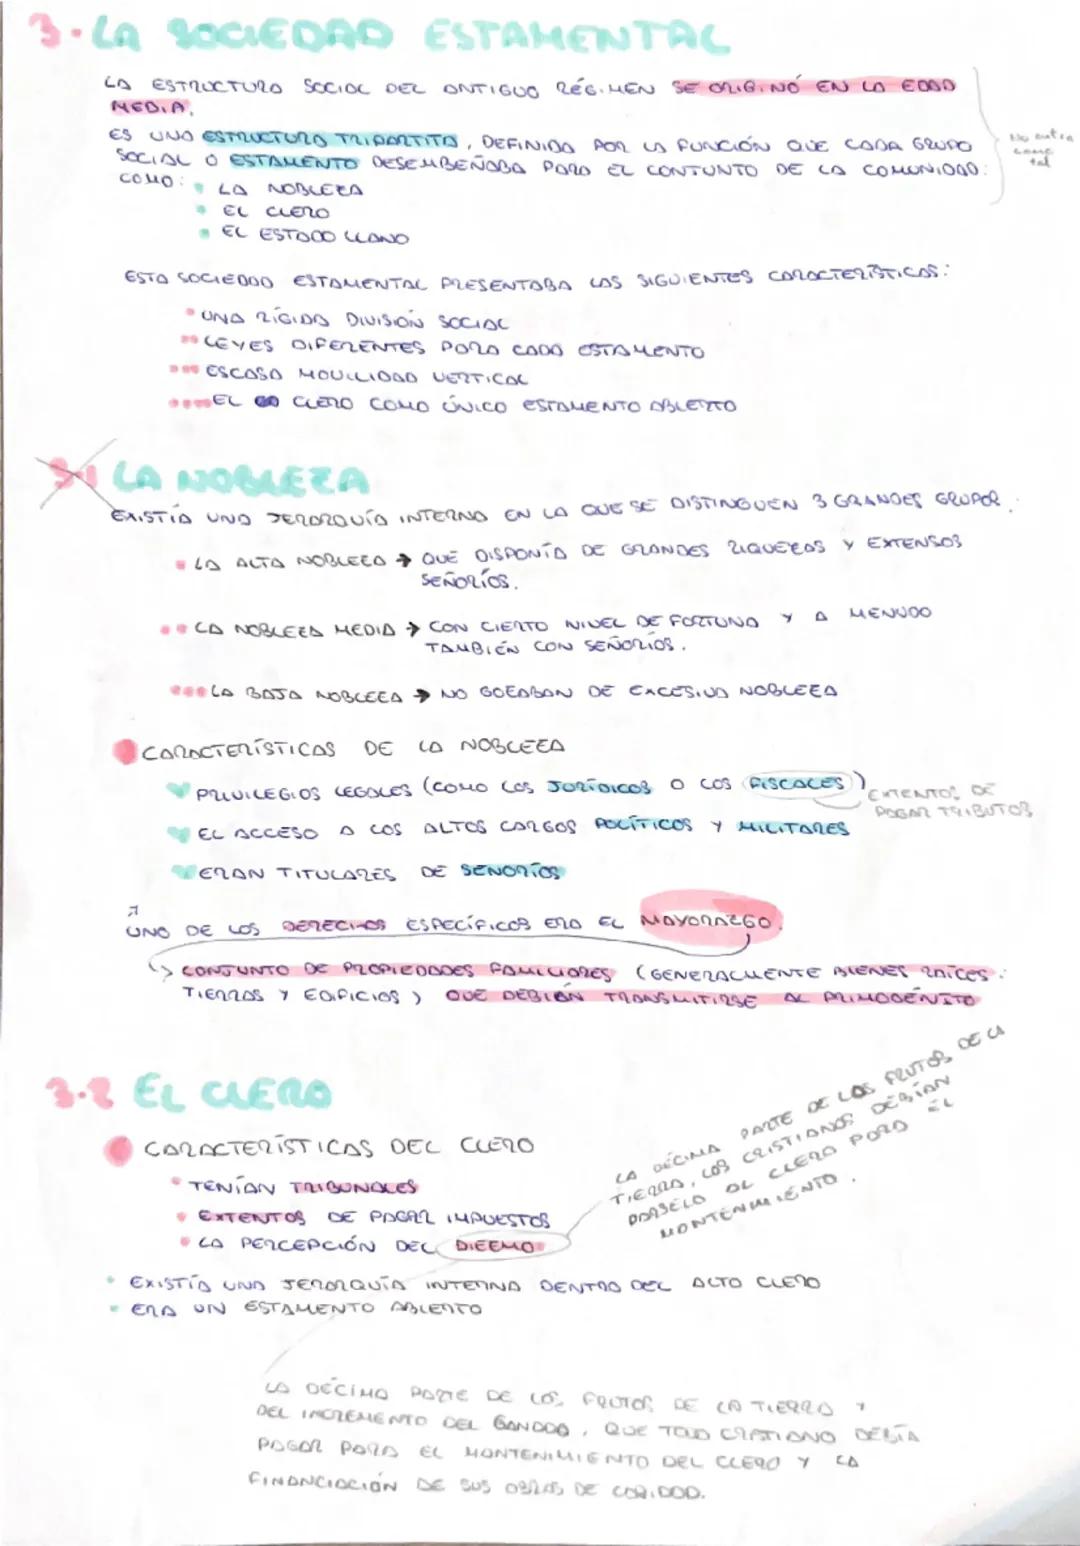 3. LA SOCIEDAD ESTAMENTAL
LA ESTRUCTURA SOCIAL DEL ANTIGUO RÉGIMEN SE ORIGINÓ EN LA EDAD
MEDIA.
ES UNA ESTRUCTURA TRIPARTITA, DEFINIDA POR LA FUNCIÓN QUE CADA GRUPO
SOCIAL O ESTAMENTO DESEMBEÑABA PARA EL CONJUNTO DE LA COMUNIDAD:
COMO:
• LA NOBLEZA
• EL CLERO
• EL ESTADO LLANO
No entra
como
tal
ESTA SOCIEDAD ESTAMENTAL PRESENTABA LAS SIGUIENTES CARACTERÍSTICAS:
• UNA RÍGIDA DIVISIÓN SOCIAL
•• LEYES DIFERENTES PARA CADA ESTAMENTO
••• ESCASA MOVILIDAD VERTICAL
•••• EL CLERO COMO ÚNICO ESTAMENTO ABIERTO
3.1 LA NOBLEZA
EXISTÍA UNA JERARQUÍA INTERNA EN LA QUE SE DISTINGUEN 3 GRANDES GRUPOS:
• LA ALTA NOBLEZA → QUE DISPONÍA DE GRANDES RIQUEZAS Y EXTENSOS
SEÑORÍOS.
•• LA NOBLEZA MEDIA → CON CIERTO NIVEL DE FORTUNA Y A MENUDO
TAMBIÉN CON SEÑORÍOS.
••• LA BAJA NOBLEZA → NO GOZABAN DE EXCESIVA NOBLEZA
CARACTERÍSTICAS DE LA NOBLEZA
PRIVILEGIOS LEGALES (COMO LOS JURÍDICOS O LOS FISCALES)
EXTENTOS DE
PAGAR TRIBUTOS
EL ACCESO A LOS ALTOS CARGOS POLÍTICOS Y MILITARES
ERAN TITULARES DE SEÑORÍOS
UNO DE LOS DERECHOS ESPECÍFICOS ERA EL MAYORAZGO.
↳ CONJUNTO DE PROPIEDADES FAMILIARES (GENERALMENTE BIENES RAÍCES:
TIERRAS Y EDIFICIOS) QUE DEBÍAN TRANSMITIRSE AL PRIMOGÉNITO
3.2 EL CLERO
CARACTERÍSTICAS DEL CLERO
• TENÍAN TRIBUNALES
• EXTENTOS DE PAGAR IMPUESTOS
• LA PERCEPCIÓN DEL DIEZMO
LA DÉCIMA PARTE DE LOS FRUTOS DE LA
TIERRA, LOS CRISTIANOS DEBÍAN
DÁRSELO AL CLERO PARA EL
MANTENIMIENTO.
• EXISTÍA UNA JERARQUÍA INTERNA DENTRO DEL ALTO CLERO
• ERA UN ESTAMENTO ABIERTO
LA DÉCIMA PARTE DE LOS FRUTOS DE LA TIERRA Y
DEL INCREMENTO DEL GANADO, QUE TODO CRISTIANO DEBÍA
PAGAR PARA EL MANTENIMIENTO DEL CLERO Y LA
FINANCIACIÓN DE SUS OBRAS DE CARIDAD.